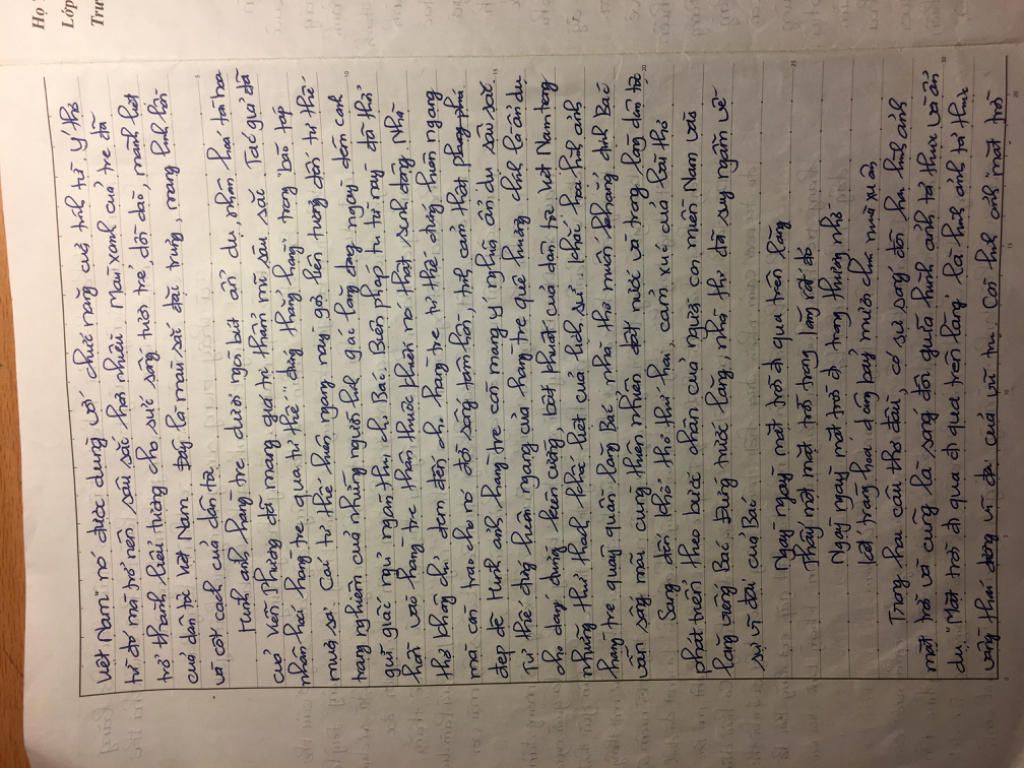 Họ
Lớp
Trư
Việt Nam" nó được dùng với chức năng của tính từ. Ý thơ
từ đó mà trở nên sâu sắc hơn nhiều. Màu xanh của tre đã
trở thành biểu tượng cho sức sống tươi trẻ, dồi dào, mãnh liệt
của dân tộc Việt Nam. Đây là màu sắc đặc trưng, mang linh hồn
và cốt cách của dân tộc.
Hình ảnh hàng tre dưới ngòi bút ẩn dụ, nhân hoá tài hoa
của Viễn Phương đã mang giá trị thẩm mĩ sâu sắc. Tác giả đã
nhân hoá hàng tre qua tư thế "đứng thẳng hàng" trong bão táp
mưa sa. Cái tư thế hiên ngang này gợi liên tưởng đến tư thế
trang nghiêm của những người lính gác lăng đang ngày đêm canh
giữ giấc ngủ ngàn thu cho Bác. Biện pháp tu từ này đã thổi
hồn vào hàng tre, thân thuộc khiến nó thật sinh động. Nhà
thơ không chỉ đem đến cho hàng tre tư thế đứng hiên ngang
mà còn trao cho nó đời sống tâm hồn, tình cảm thật phong phú,
đẹp đẽ. Hình ảnh hàng tre còn mang ý nghĩa ẩn dụ sâu sắc.
Tư thế đứng hiên ngang của hàng tre quê hương chính là ẩn dụ
cho dáng đứng kiên cường, bất khuất của dân tộc Việt Nam trong
những thử thách khốc liệt của lịch sử. Khắc hoạ hình ảnh
hàng tre quây quần lăng Bác, nhà thơ muốn khẳng định Bác
vẫn sống mãi cùng thiên nhiên đất nước và trong lòng dân tộc.
Sang đến khổ thơ thứ hai, cảm xúc của bài thơ
phát triển theo bước chân của người con miền Nam vào
lăng viếng Bác. Đứng trước lăng, nhà thơ đã suy ngẫm về
sự vĩ đại của Bác
Ngày ngày mặt trời đi qua trên lăng
Thấy một mặt trời trong lăng rất đỏ
Ngày ngày mặt trời đi trong thương nhớ
Kết tràng hoa dâng bảy mươi chín mùa xuân
Trong hai câu thơ đầu, có sự sóng đôi hai hình ảnh
mặt trời và cũng là sóng đôi giữa hình ảnh tả thực và ẩn
dụ. "Mặt trời đi qua đi qua trên lăng" là hình ảnh tả thực
vầng thái dương vĩ đại của vũ trụ. Còn hình ảnh "mặt trời